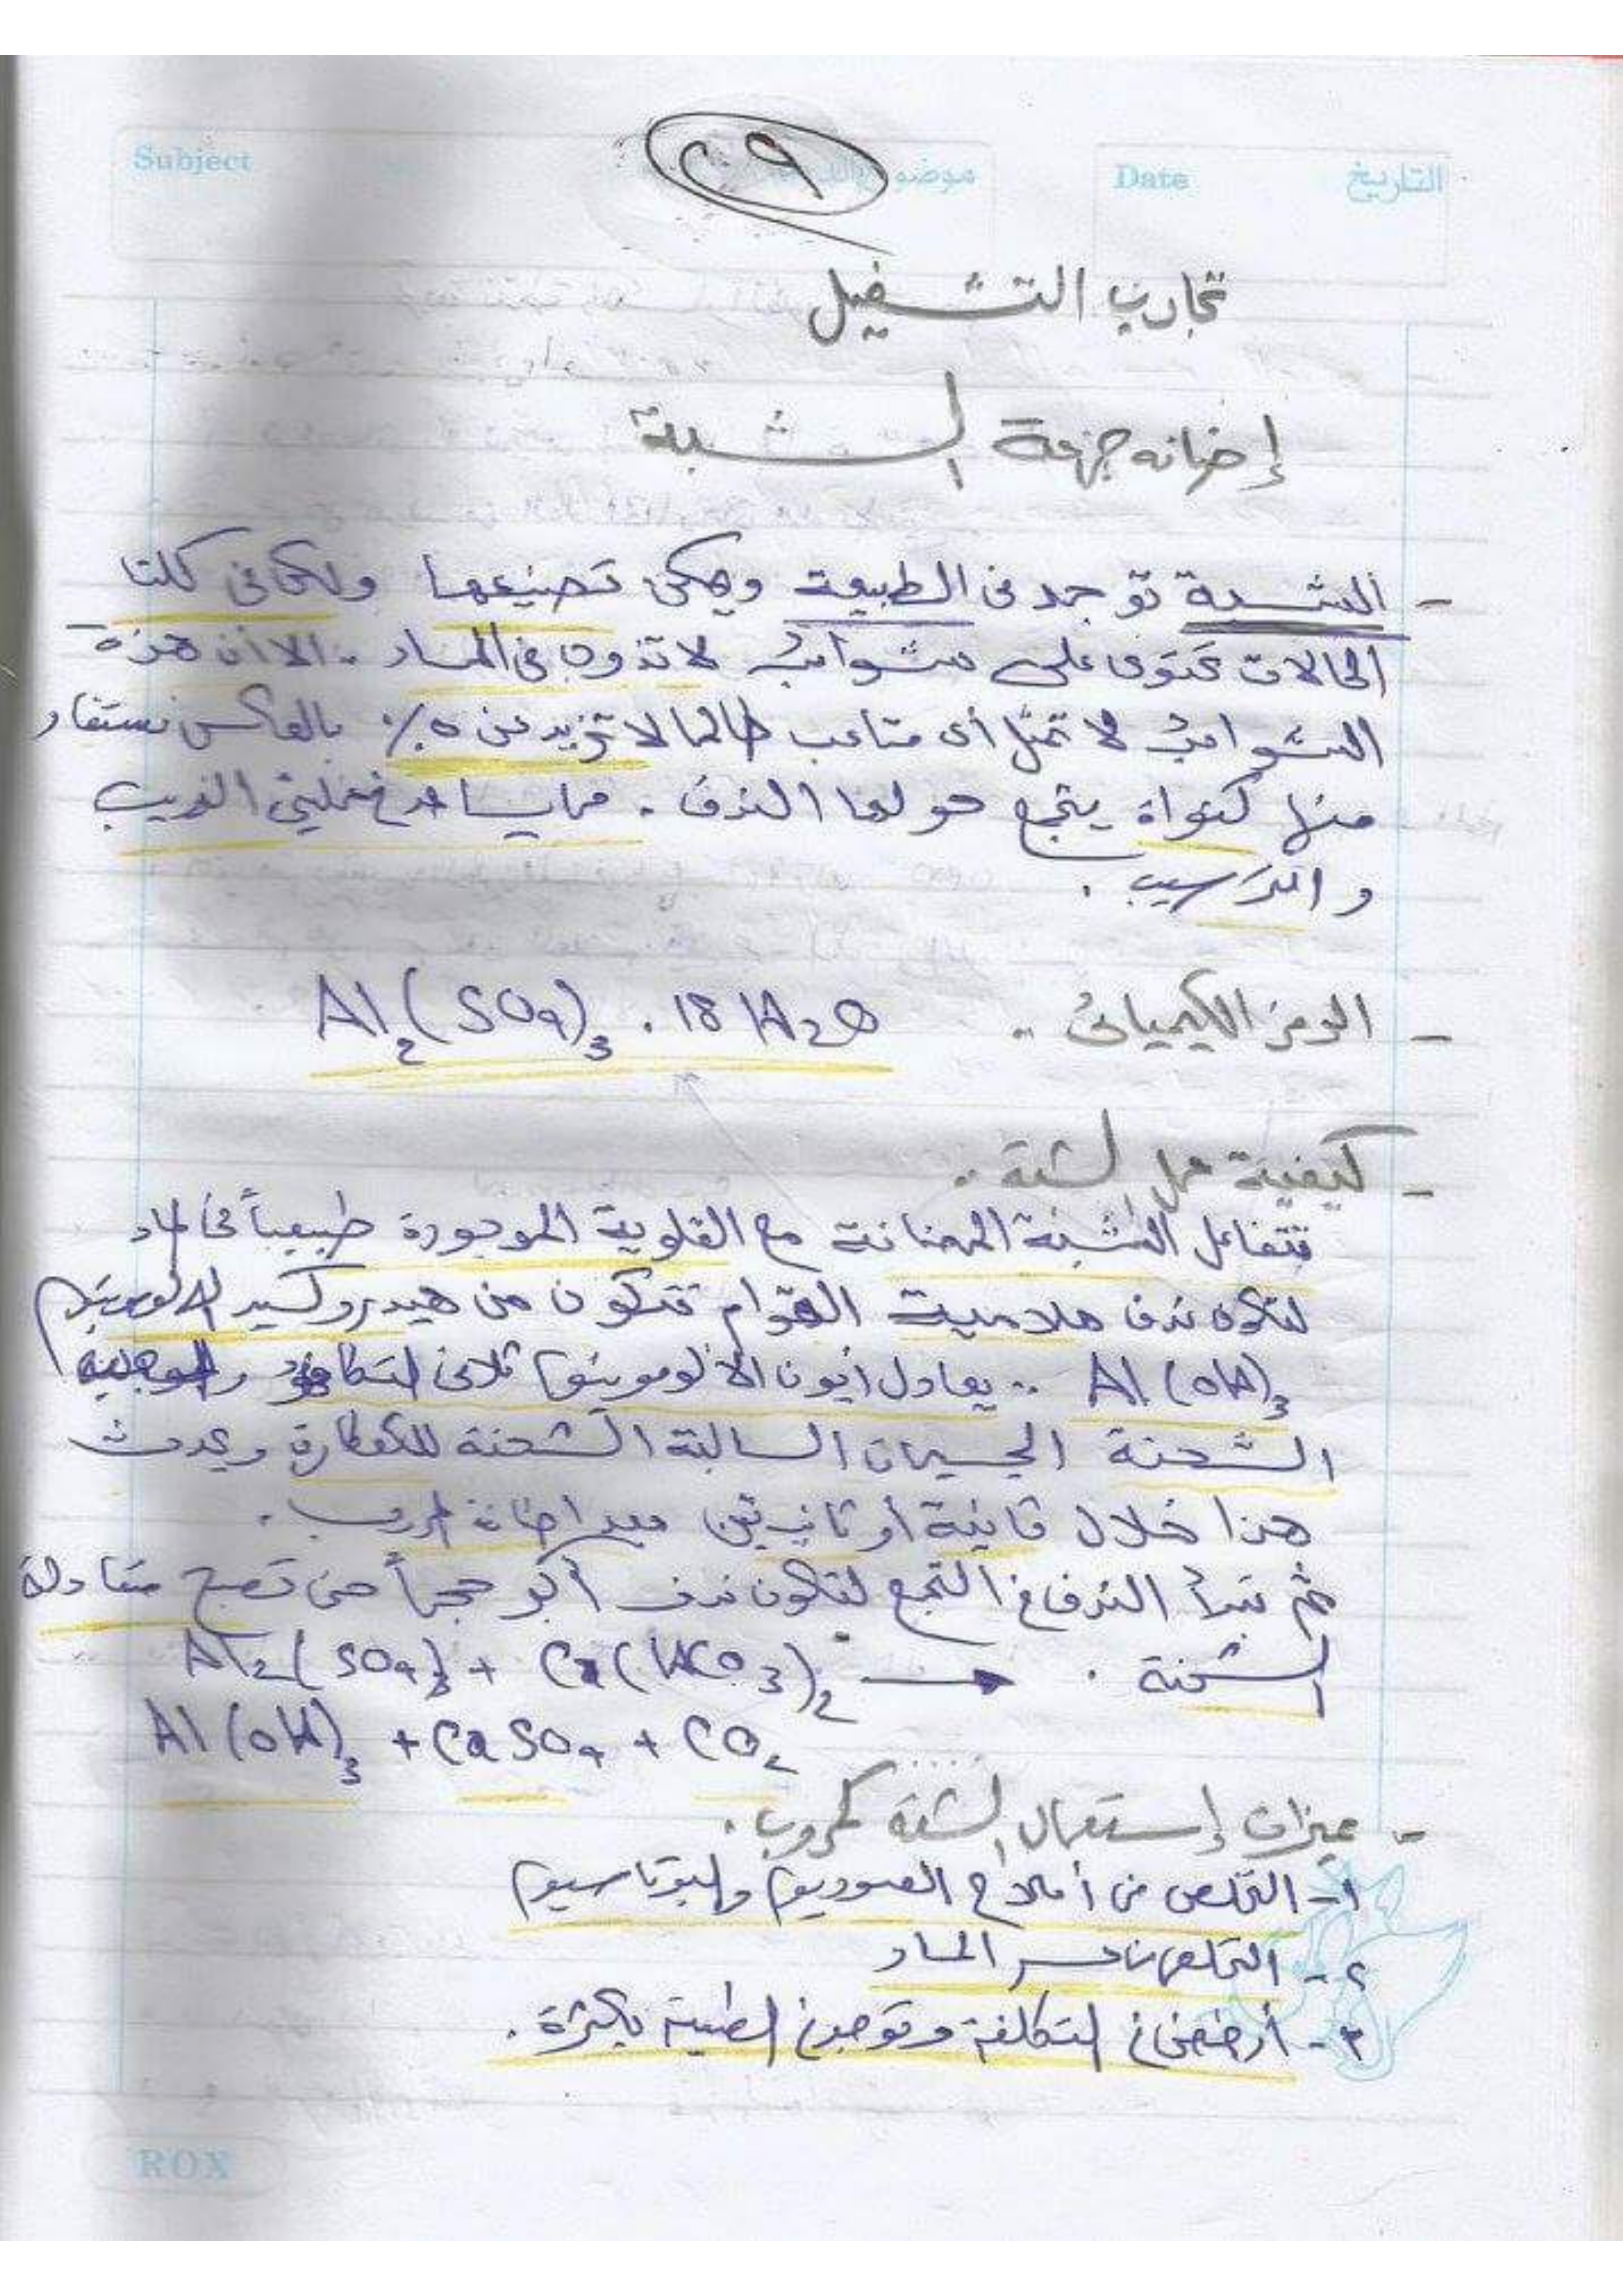 Subject
موضوع
Date
التاريخ
٢٩
تجارب التشغيل
إضافه جرعة الشبة
- الشبة توجد فى الطبيعة ويمكن تصنيعها ولكن فى كلتا
الحالات تحتوى على شوائب لا تذوب فى الماء .. الا أن هذه
الشوائب لا تمثل أى متاعب طالما لا تزيد عن ٥٪ بالعكس نستفاد
منها كنواة يتجمع حولها الندف . مما يساعد فى عمليتى الترويب
و الترسيب .
- الرمز الكيميائى .. Al2(SO4)3 . 18 H2O
- كيفية عمل الشبة ..
تتفاعل الشبة المضافة مع القلوية الموجودة طبيعياً فى الماء
لتكون ندف هلامية القوام تتكون من هيدروكسيد الالومنيوم
Al(OH)3 .. يعادل أيون الالومونيوم ثلاثى التكافؤ والموجبه
الشحنة الجسيمات السالبة الشحنة للعكارة ويحدث
هذا خلال ثانية أو ثانيتين بعد اضافة المروب .
ثم تبدأ الندف فى التجمع لتكون ندف أكبر حجماً حتى تصبح متعادلة
الشحنة . Al2(SO4)3 + Ca(HCO3)2 →
Al(OH)3 + CaSO4 + CO2
- ميزات إستعمال الشبة كمروب .
١- التخلص من أملاح الصوديوم والبوتاسيوم
٢- التخلص من عسر الماء
٣- أرخص فى التكلفة وتوجد فى الطبيعة بكثرة .
ROX